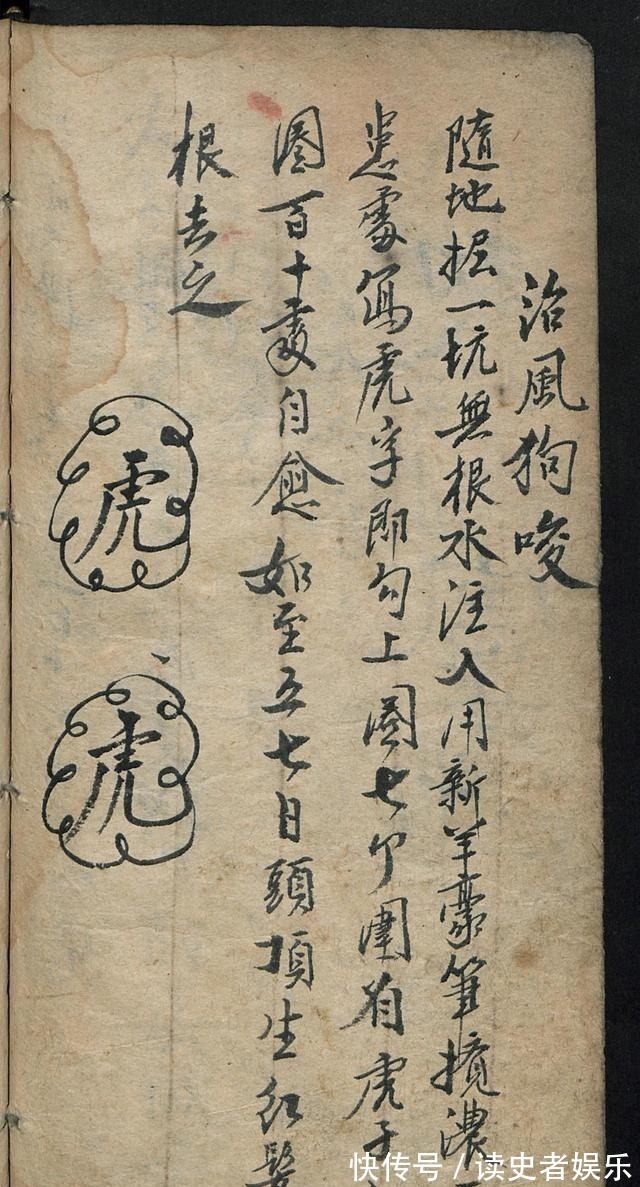 治風狗咬
隨地掘一坑無根水注入用新羊毫筆攪濃
患處寫虎字即勾上圈七个圍有虎子
圈百十處自愈如至五七日頭頂生紅髮
根去之
虎
虎
快传号/读史者娱乐